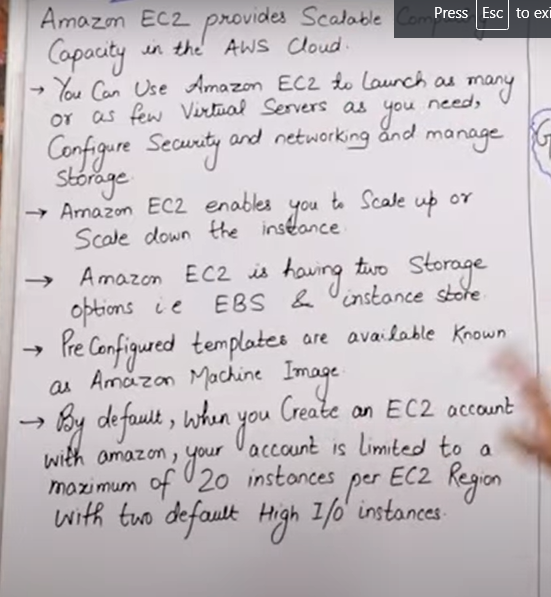 Amazon EC2 provides Scalable
Press Esc to exi
Capacity in the AWS Cloud.
→ You Can Use Amazon EC2 to launch as many
or as few Virtual Servers as you need,
Configure Security and networking and manage
Storage.
→ Amazon EC2 enables you to Scale up or
Scale down the instance.
→ Amazon EC2 is having two Storage
options i.e EBS & instance store.
→ PreConfigured templates are available Known
as Amazon Machine Image.
→ By default, when you Create an EC2 account
with amazon, your account is limited to a
maximum of 20 instances per EC2 Region
with two default High I/O instances.